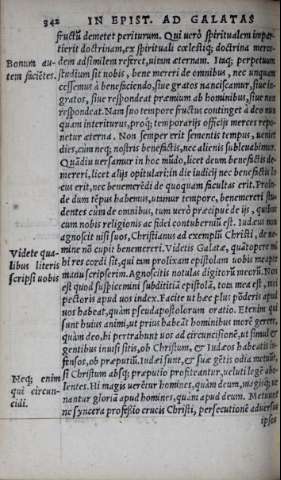 342 IN EPIST. AD GALATAS
fructū demetet periturum. Qui uerò spiritualem imper-
tierit doctrinam, ex spirituali cœlestiq; doctrina merce-
Bonum au- dem adsimilem referet, uitam æternam. Itaq; perpetuum
tem faciētes. studium sit uobis, bene mereri de omnibus, nec unquam
cessemus à beneficiendo, siue gratos nanciscamur, siue in-
gratos, siue respondeat præmium ab hominibus, siue non
respondeat. Nam suo tempore fructus continget à deo nun
quam interiturus, proq; temporarijs officijs merces repo-
netur æterna. Non semper erit sementis tempus, ueniet
dies, cùm neq; nostris benefictis, nec alienis subleuabimur.
Quādiu uersamur in hoc mūdo, licet deum benefictis de-
mereri, licet alijs opitulari: in die iudicij nec benefictis lo
cus erit, nec benemerēdi de quoquam facultas erit. Proin-
de dum tēpus habemus, utimur tempore, benemereri stu-
dentes cùm de omnibus, tum uerò præcipuè de ijs, quibus
cum nobis religionis ac fidei contubernīu est. Iudæus non
agnoscit nisi suos, Christianus ad exemplū Christi, de ne-
Videte qua- mine nō cupit benemereri. Videtis Galatæ, quātopere mi
libus literis hi res cordi sit, qui tam prolixam epistolam uobis mea ipse
scripsi uobis manu scripserim. Agnoscitis notulas digitorū meorū. Non
est quod suspicemini subditiciā epistolā, tota mea est, nisi
pectoris apud uos index. Facite ut hæc plus pōderis apud
uos habeat, quàm pseudapostolorum oratio. Etenim qui
sunt huius animi, ut prius habeāt hominibus morē gerere,
quàm deo, hi pertrahunt uos ad circuncisionē, ut simul &
gentibus inuisi sitis, ob Christum, & Iudæos habeatis in-
fensos, ob præputiū. Iudæi sunt, & suæ gētis odia metuūt,
Neq; enim si Christum absq; præputio profiteantur, ueluti legē abo-
qui circun- lentes. Hi magis uerētur homines, quàm deum, magisq; ue-
cidi. nantur gloriā apud homines, quàm apud deum. Metuunt
ne syncera professio crucis Christi, persecutionē aduersus
ipsos